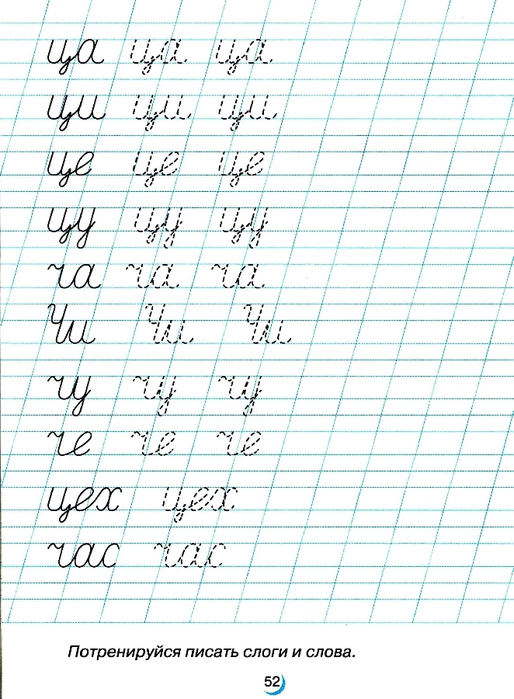 ца ца ца
ци ци ци
це це це
цу цу цу
ча ча ча
Чи Чи Чи
чу чу чу
че че че
цех цех
час час
Потренируйся писать слоги и слова.
52